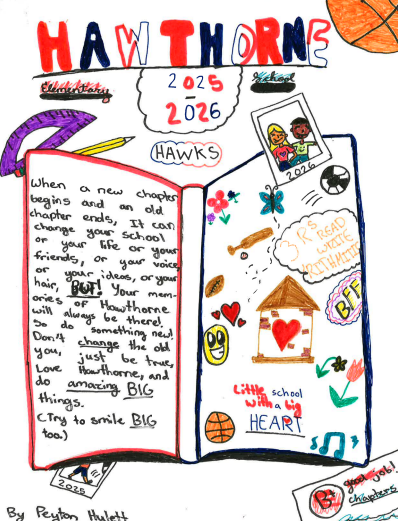 HAWTHORNE
Elementary School
2025
-
2026
HAWKS
2026
When a new chapter
begins and an old
chapter ends, It can
change your school
or your life or your
friends, or your voice,
or your ideas, or your
hair, BUT! Your mem-
ories of Hawthorne
will always be there!
So do something new!
Don't change the old
you, just be true,
Love Hawthorne, and
do amazing BIG
things.
(Try to smile BIG
too.)
3 R's READ
WRITE
RITHMITIC
BFF
Little school
with a big
HEART
2025
B+ good job!
chapters
By Peyton Hulett